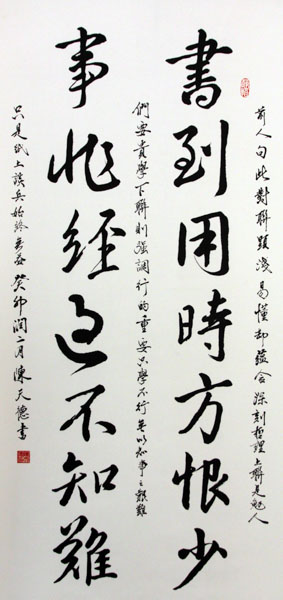 書到用時方恨少
事非經過不知難
前人句此對聯雖淺易懂却蘊含深刻哲理上聯是勉人
們要貴學下聯則强調行的重要只學不行無以知事之艱難
只是紙上談兵始終無益癸卯閏二月陳天德書